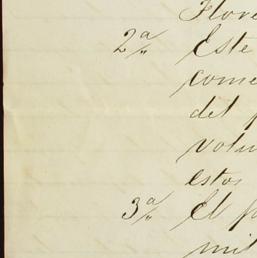 Flore
2ª Este
come
del
volu
estos
3ª El
mil